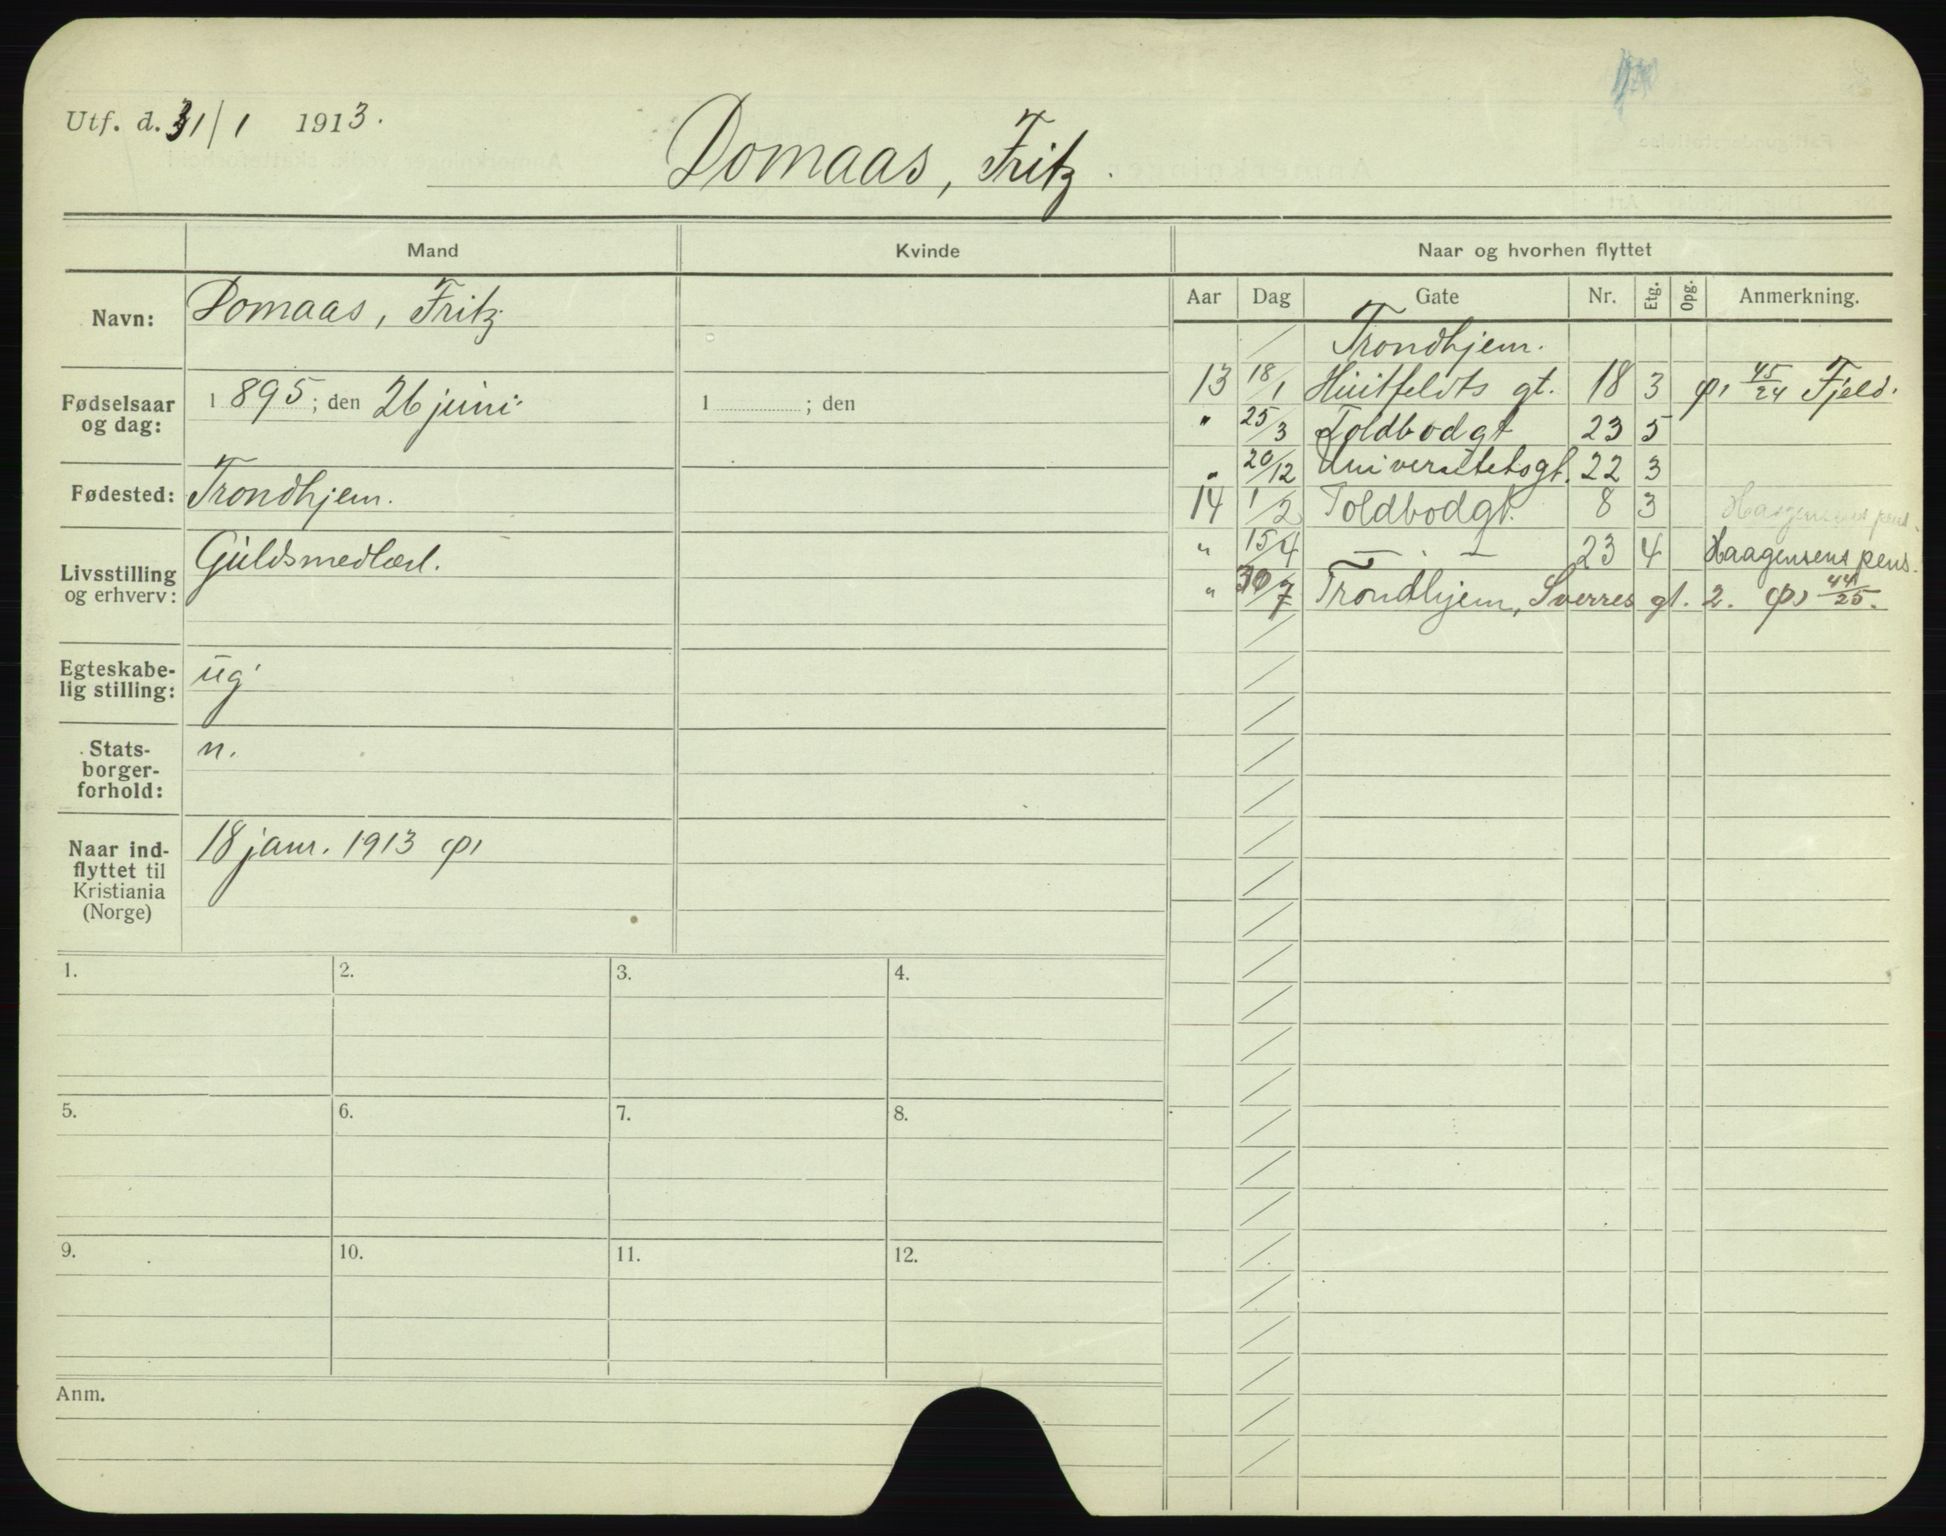 Utf. d. 31/1 1913.
Domaas, Fritz.
Mand Kvinde Naar og hvorhen flyttet
Navn: Domaas, Fritz
Fødselsaar og dag: 1895; den 26 juni. 1 ; den
Fødested: Trondhjem.
Livsstilling og erhverv: Guldsmedlærl.
Egteskabelig stilling: ug
Statsborgerforhold: n.
Naar indflyttet til Kristiania (Norge) 18 janr. 1913 φ1
Aar Dag Gate Nr. Etg. Opg. Anmerkning.
Trondhjem.
13 18/1 Huitfeldts gt. 18 3 φ1 45/24 Fjeld.
" 25/3 Toldbodgt 23 5
" 20/12 Universitetsgt. 22 3
14 1/2 Toldbodgt. 8 3 Haagensens pens.
" 15/4 — . — 23 4 Haagensens pens.
" 30/7 Trondhjem, Sverres gt. 2. φ1 44/25.
1. 2. 3. 4.
5. 6. 7. 8.
9. 10. 11. 12.
Anm.